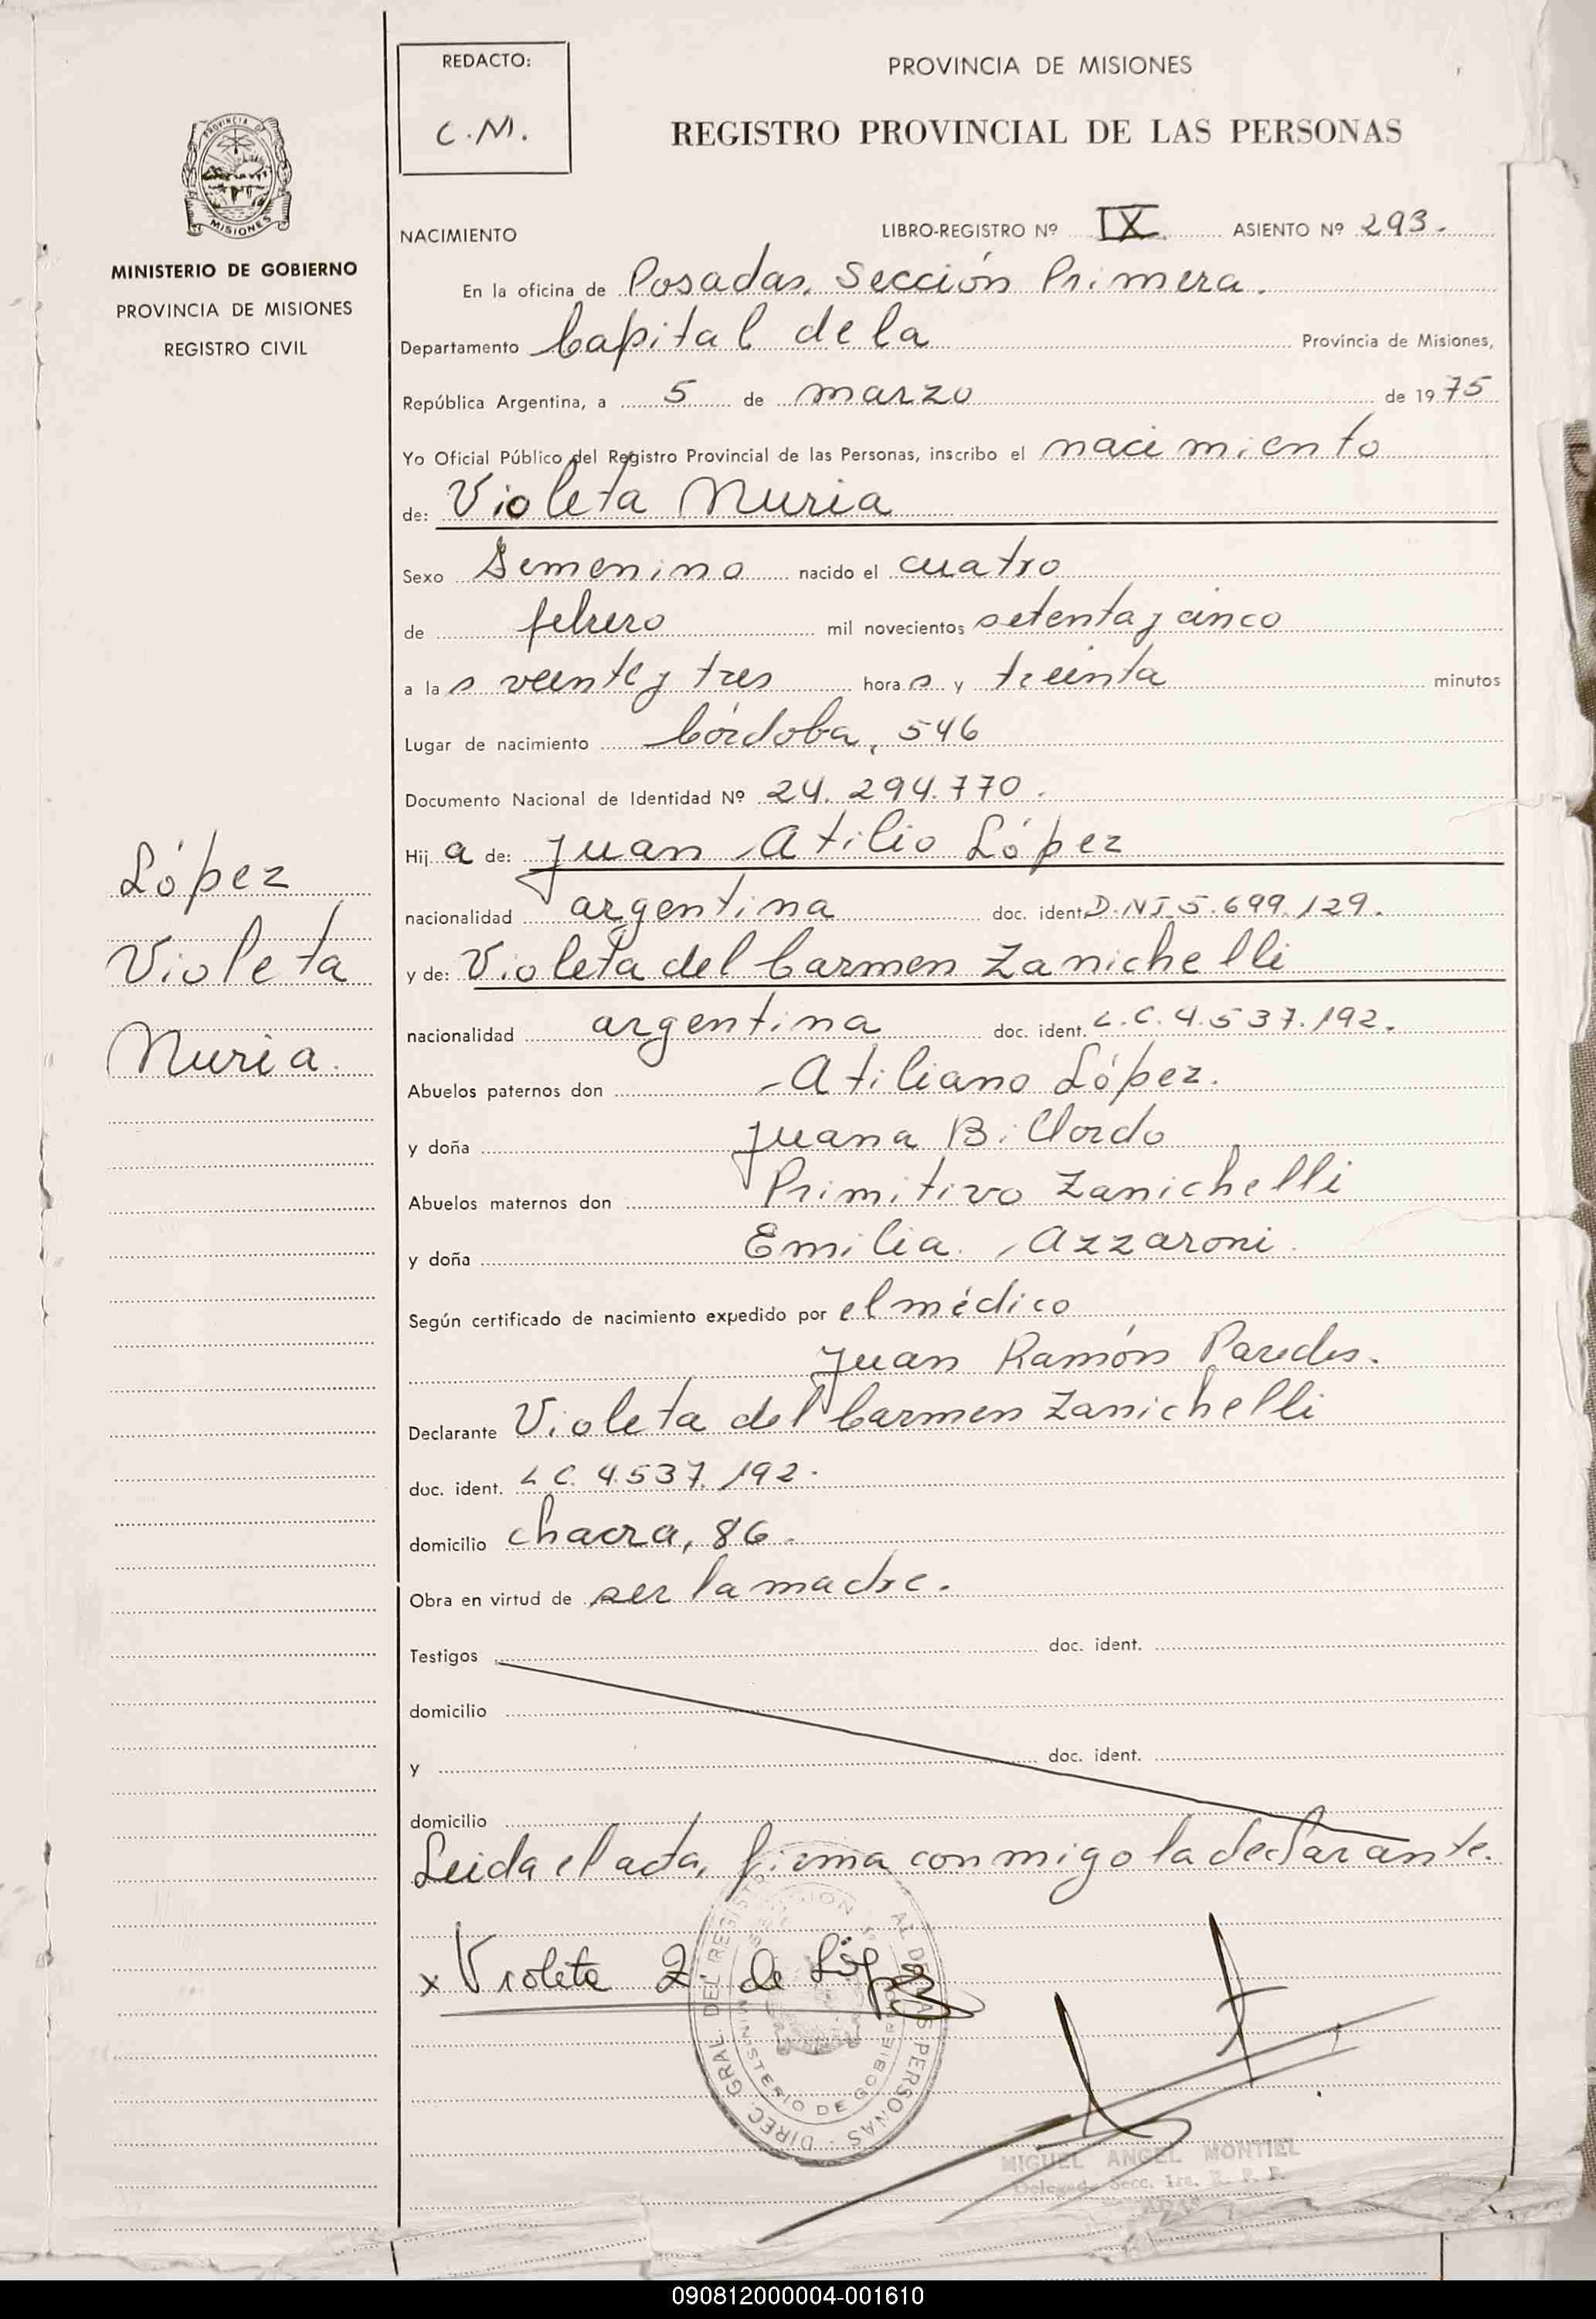 REDACTO:
C.M.
PROVINCIA DE MISIONES
REGISTRO PROVINCIAL DE LAS PERSONAS
PROVINCIA DE
MISIONES
MINISTERIO DE GOBIERNO
PROVINCIA DE MISIONES
REGISTRO CIVIL
López
Violeta
Nuria.
NACIMIENTO LIBRO-REGISTRO Nº IX ASIENTO Nº 293.
En la oficina de Posadas, Sección Primera.
Departamento Capital de la Provincia de Misiones,
República Argentina, a 5 de marzo de 1975
Yo Oficial Público del Registro Provincial de las Personas, inscribo el nacimiento
de: Violeta Nuria
Sexo Femenino nacido el cuatro
de febrero mil novecientos setenta y cinco
a las veinte y tres horas y treinta minutos
Lugar de nacimiento Córdoba, 546
Documento Nacional de Identidad Nº 24.294.770.
Hija de: Juan Atilio López
nacionalidad argentina doc. ident. D.N.I. 5.699.129.
y de: Violeta del Carmen Zanichelli
nacionalidad argentina doc. ident. L.C. 4.537.192.
Abuelos paternos don Atiliano López.
y doña Juana Billordo
Abuelos maternos don Primitivo Zanichelli
y doña Emilia Azzaroni.
Según certificado de nacimiento expedido por el médico
Juan Ramón Paredes.
Declarante Violeta del Carmen Zanichelli
doc. ident. L.C. 4.537.192.
domicilio chacra, 86.
Obra en virtud de ser la madre.
Testigos doc. ident.
domicilio
y doc. ident.
domicilio
Leida el acta, firma conmigo la declarante.
x Violeta Z de López
DIREC. GRAL. DEL REGISTRO AL DE LAS PERSONAS
MINISTERIO DE GOBIERNO
MIGUEL ANGEL MONTIEL
Delegado Secc. 1ra. R. P. P.
090812000004-001610